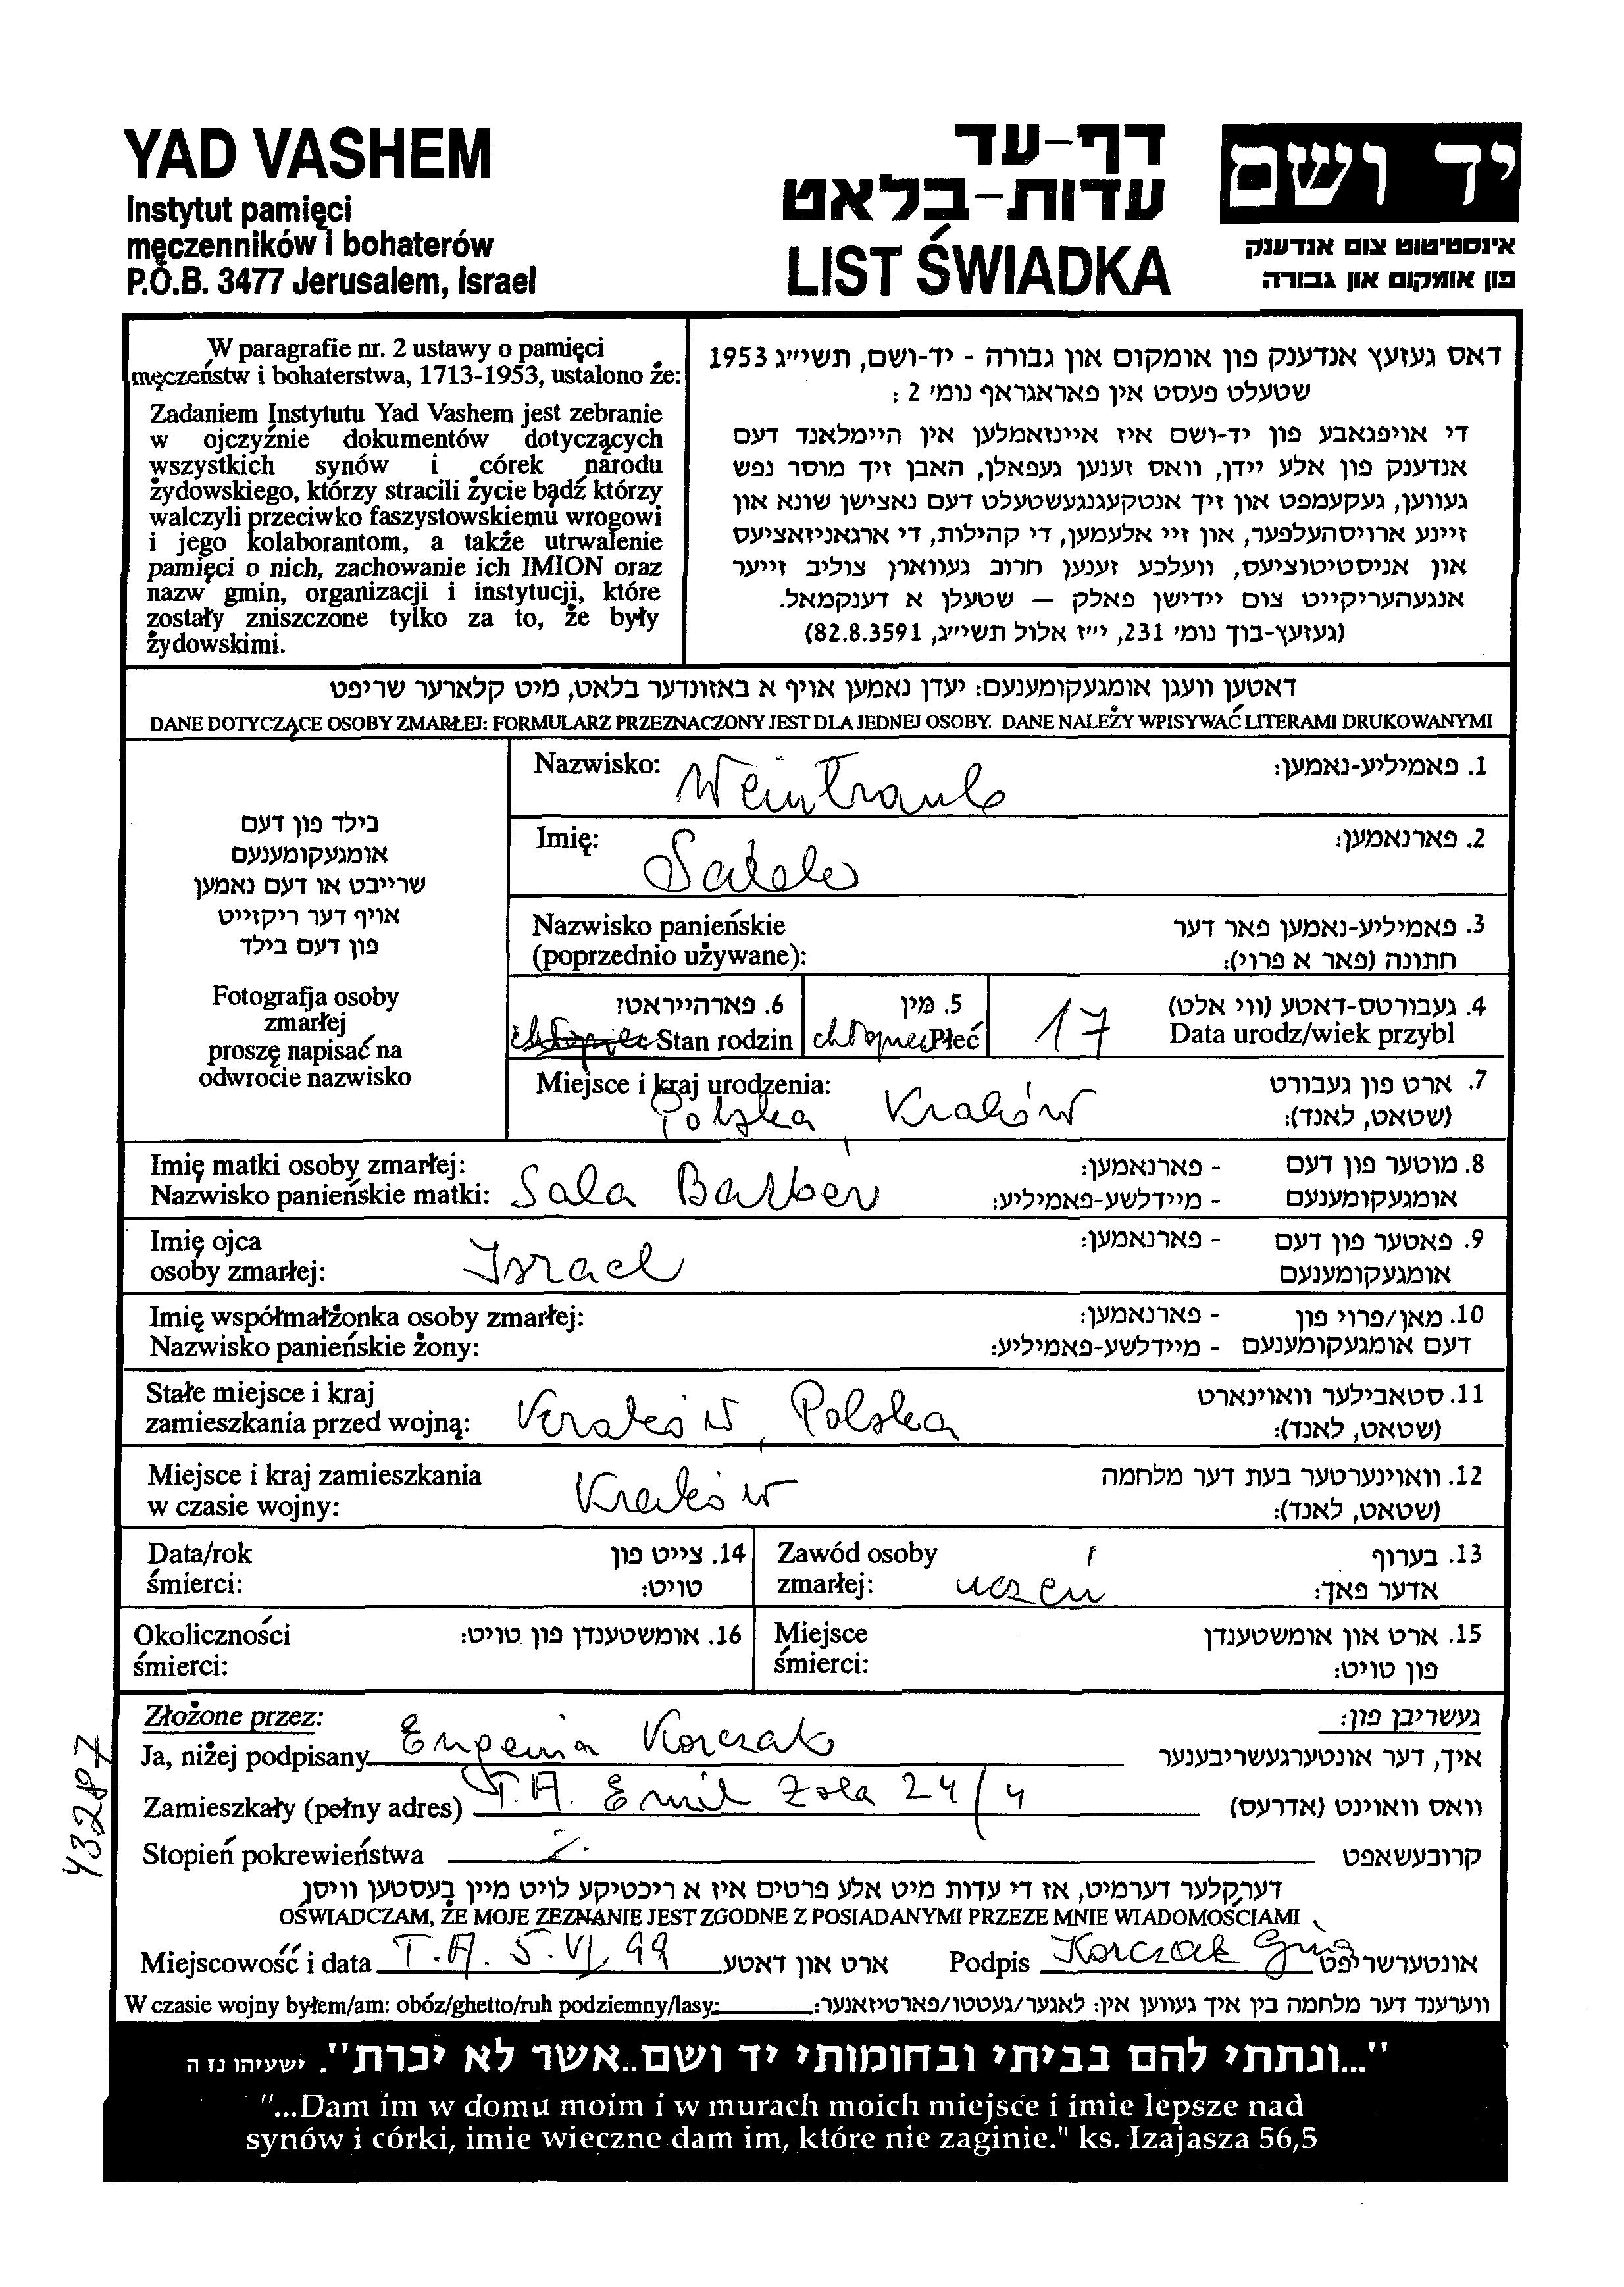 YAD VASHEM
Instytut pamięci
męczenników i bohaterów
P.O.B. 3477 Jerusalem, Israel
דף-עד
עדות-בלאט
LIST ŚWIADKA
יד ושם
אינסטיטוט צום אנדענק
פון אומקום און גבורה
W paragrafie nr. 2 ustawy o pamięci
męczeństw i bohaterstwa, 1713-1953, ustalono że:
Zadaniem Instytutu Yad Vashem jest zebranie
w ojczyźnie dokumentów dotyczących
wszystkich synów i córek narodu
żydowskiego, którzy stracili życie bądź którzy
walczyli przeciwko faszystowskiemu wrogowi
i jego kolaborantom, a także utrwalenie
pamięci o nich, zachowanie ich IMION oraz
nazw gmin, organizacji i instytucji, które
zostały zniszczone tylko za to, że były
żydowskimi.
דאס געזעץ אנדענק פון אומקום און גבורה - יד-ושם, תשי״ג 1953
שטעלט פעסט אין פאראגראף נומ׳ 2 :
די אויפגאבע פון יד-ושם איז איינזאמלען אין היימלאנד דעם
אנדענק פון אלע יידן, וואס זענען געפאלן, האבן זיך מוסר נפש
געווען, געקעמפט און זיך אנטקעגנגעשטעלט דעם נאצישן שונא און
זיינע ארויסהעלפער, און זיי אלעמען, די קהילות, די ארגאניזאציעס
און אניסטיטוציעס, וועלכע זענען חרוב געווארן צוליב זייער
אנגעהעריקייט צום יידישן פאלק – שטעלן א דענקמאל.
(געזעץ-בוך נומ׳ 231, י״ז אלול תשי״ג, 82.8.3591)
דאטען וועגן אומגעקומענעם: יעדן נאמען אויף א באזונדער בלאט, מיט קלארער שריפט
DANE DOTYCZĄCE OSOBY ZMARŁEJ: FORMULARZ PRZEZNACZONY JEST DLA JEDNEJ OSOBY. DANE NALEŻY WPISYWAĆ LITERAMI DRUKOWANYMI
בילד פון דעם
אומגעקומענעם
שרייבט או דעם נאמען
אויף דער ריקזייט
פון דעם בילד
Fotografja osoby
zmarłej
proszę napisać na
odwrocie nazwisko
Nazwisko: Weintraub 1. פאמיליע-נאמען:
Imię: 2. פארנאמען:
Nazwisko panieńskie 3. פאמיליע-נאמען פאר דער
(poprzednio używane): חתונה (פאר א פרוי):
6. פארהייראט? 5. מין 4. געבורטס-דאטע (ווי אלט)
Stan rodzin chłopiec Płeć 17 Data urodz/wiek przybl
Miejsce i kraj urodzenia: 7. ארט פון געבורט
Polska, Kraków (שטאט, לאנד):
Imię matki osoby zmarłej: - פארנאמען: 8. מוטער פון דעם
Nazwisko panieńskie matki: Sala Barber - מיידלשע-פאמיליע: אומגעקומענעם
Imię ojca - פארנאמען: 9. פאטער פון דעם
osoby zmarłej: Israel אומגעקומענעם
Imię współmałżonka osoby zmarłej: - פארנאמען: 10. מאן/פרוי פון
Nazwisko panieńskie żony: - מיידלשע-פאמיליע: דעם אומגעקומענעם
Stałe miejsce i kraj 11. סטאבילער וואוינארט
zamieszkania przed wojną: Kraków, Polska (שטאט, לאנד):
Miejsce i kraj zamieszkania 12. וואוינערטער בעת דער מלחמה
w czasie wojny: Kraków (שטאט, לאנד):
Data/rok 14. צייט פון Zawód osoby 13. בערוף
śmierci: טויט: zmarłej: uczeń אדער פאך:
Okoliczności 16. אומשטענדן פון טויט: Miejsce 15. ארט און אומשטענדן
śmierci: śmierci: פון טויט:
Złożone przez: געשריבן פון:
Ja, niżej podpisany Eugenia Korczak איך, דער אונטערגעשריבענער
Zamieszkały (pełny adres) T.A. Emil Zola 24/4 וואס וואוינט (אדרעס)
Stopień pokrewieństwa קרובעשאפט
דערקלער דערמיט, אז די עדות מיט אלע פרטים איז א ריכטיקע לויט מיין בעסטען וויסן
OŚWIADCZAM, ŻE MOJE ZEZNANIE JEST ZGODNE Z POSIADANYMI PRZEZE MNIE WIADOMOŚCIAMI
Miejscowość i data T.A. 5.VI.99 ארט און דאטע Podpis Korczak אונטערשריפט
W czasie wojny byłem/am: obóz/ghetto/ruh podziemny/lasy: ווערענד דער מלחמה בין איך געווען אין: לאגער/געטטו/פארטיזאנער:
432887
"...ונתתי להם בביתי ובחומותי יד ושם..אשר לא יכרת". ישעיהו נז ה
"...Dam im w domu moim i w murach moich miejsce i imie lepsze nad
synów i córki, imie wieczne dam im, które nie zaginie." ks. Izajasza 56,5